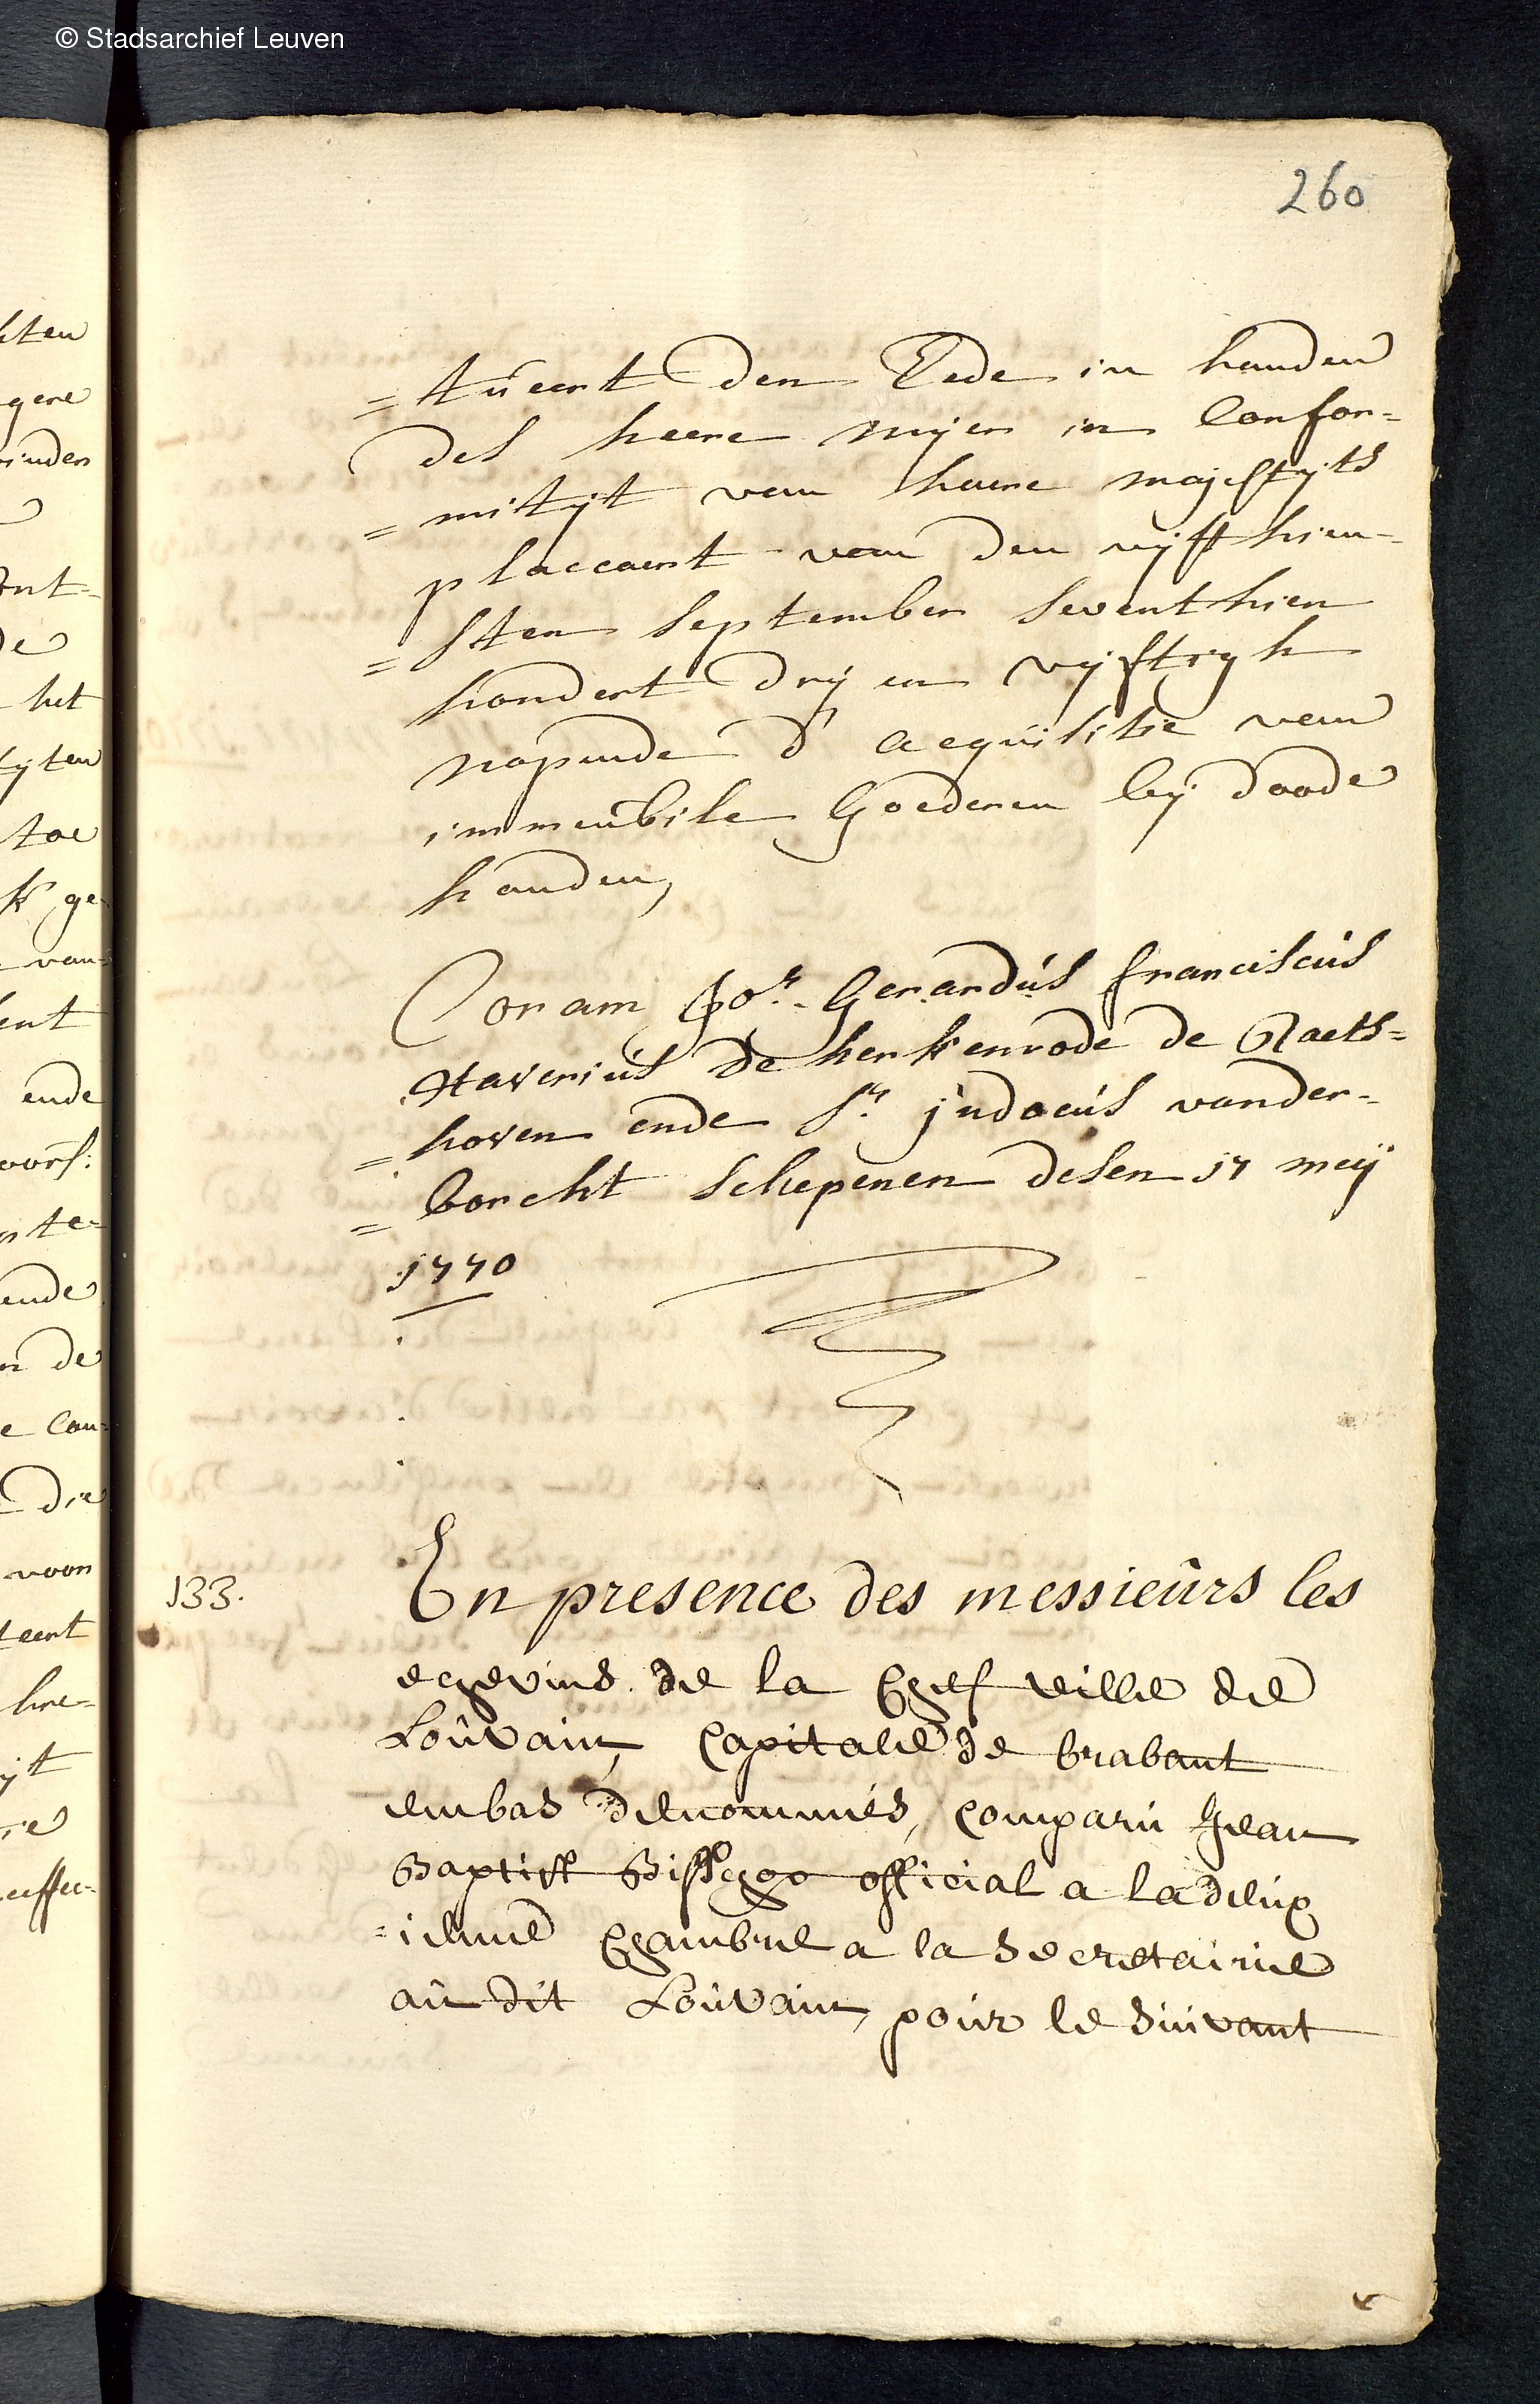 © Stadsarchief Leuven
260
= tueert den Eede in handen
des heere meijer in Confor=
= mitijt van haere majestijts
placcaert van den vijfthien=
= sten september seventhien
hondert drij en vijftigh
nopende d'acquisitie van
immeubile Goederen bij doode
handen,
Coram Jor. Gerardus franciscus
Xaverius de herkenrode de Raets=
= hoven ende Sr. judocus vander=
= borcht schepenen desen 17 meij
1770
133.
En presence des messieurs les
echevins de la chef ville de
Louvain, Capitale de brabant
embas denommés, comparu Jean
Baptist official a la deux
=ieme chambre a la Secretairie
au dit Louvain, pour le suivant